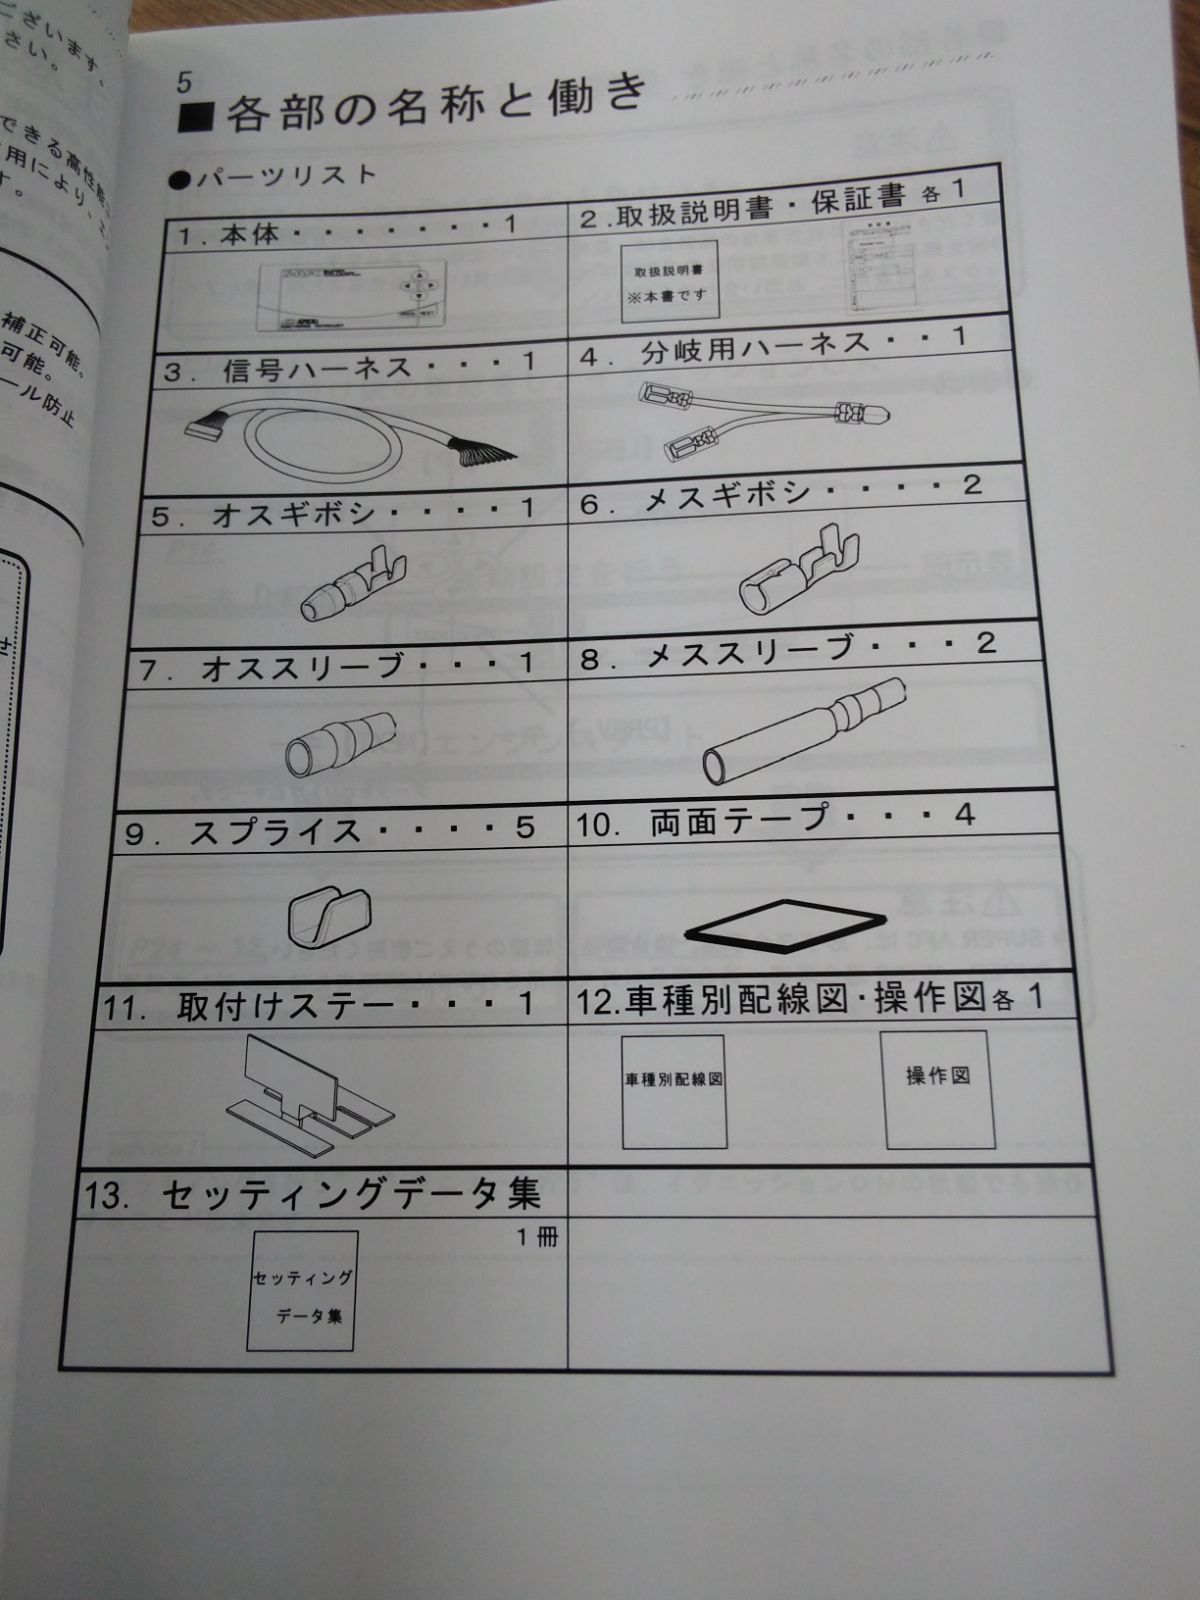 ございます。
さい。
できる高性能
用により、
す。
補正可能。
可能。
ール防止
せ
5
■各部の名称と働き
●パーツリスト
1. 本体・・・・・・・1
2.取扱説明書・保証書 各1
取扱説明書
※本書です
3. 信号ハーネス・・・1
4. 分岐用ハーネス・・1
5. オスギボシ・・・・1
6. メスギボシ・・・・2
7. オススリーブ・・・1
8. メススリーブ・・・2
9. スプライス・・・・5
10. 両面テープ・・・4
11. 取付けステー・・・1
12.車種別配線図・操作図各1
車種別配線図
操作図
13. セッティングデータ集
1冊
セッティング
データ集